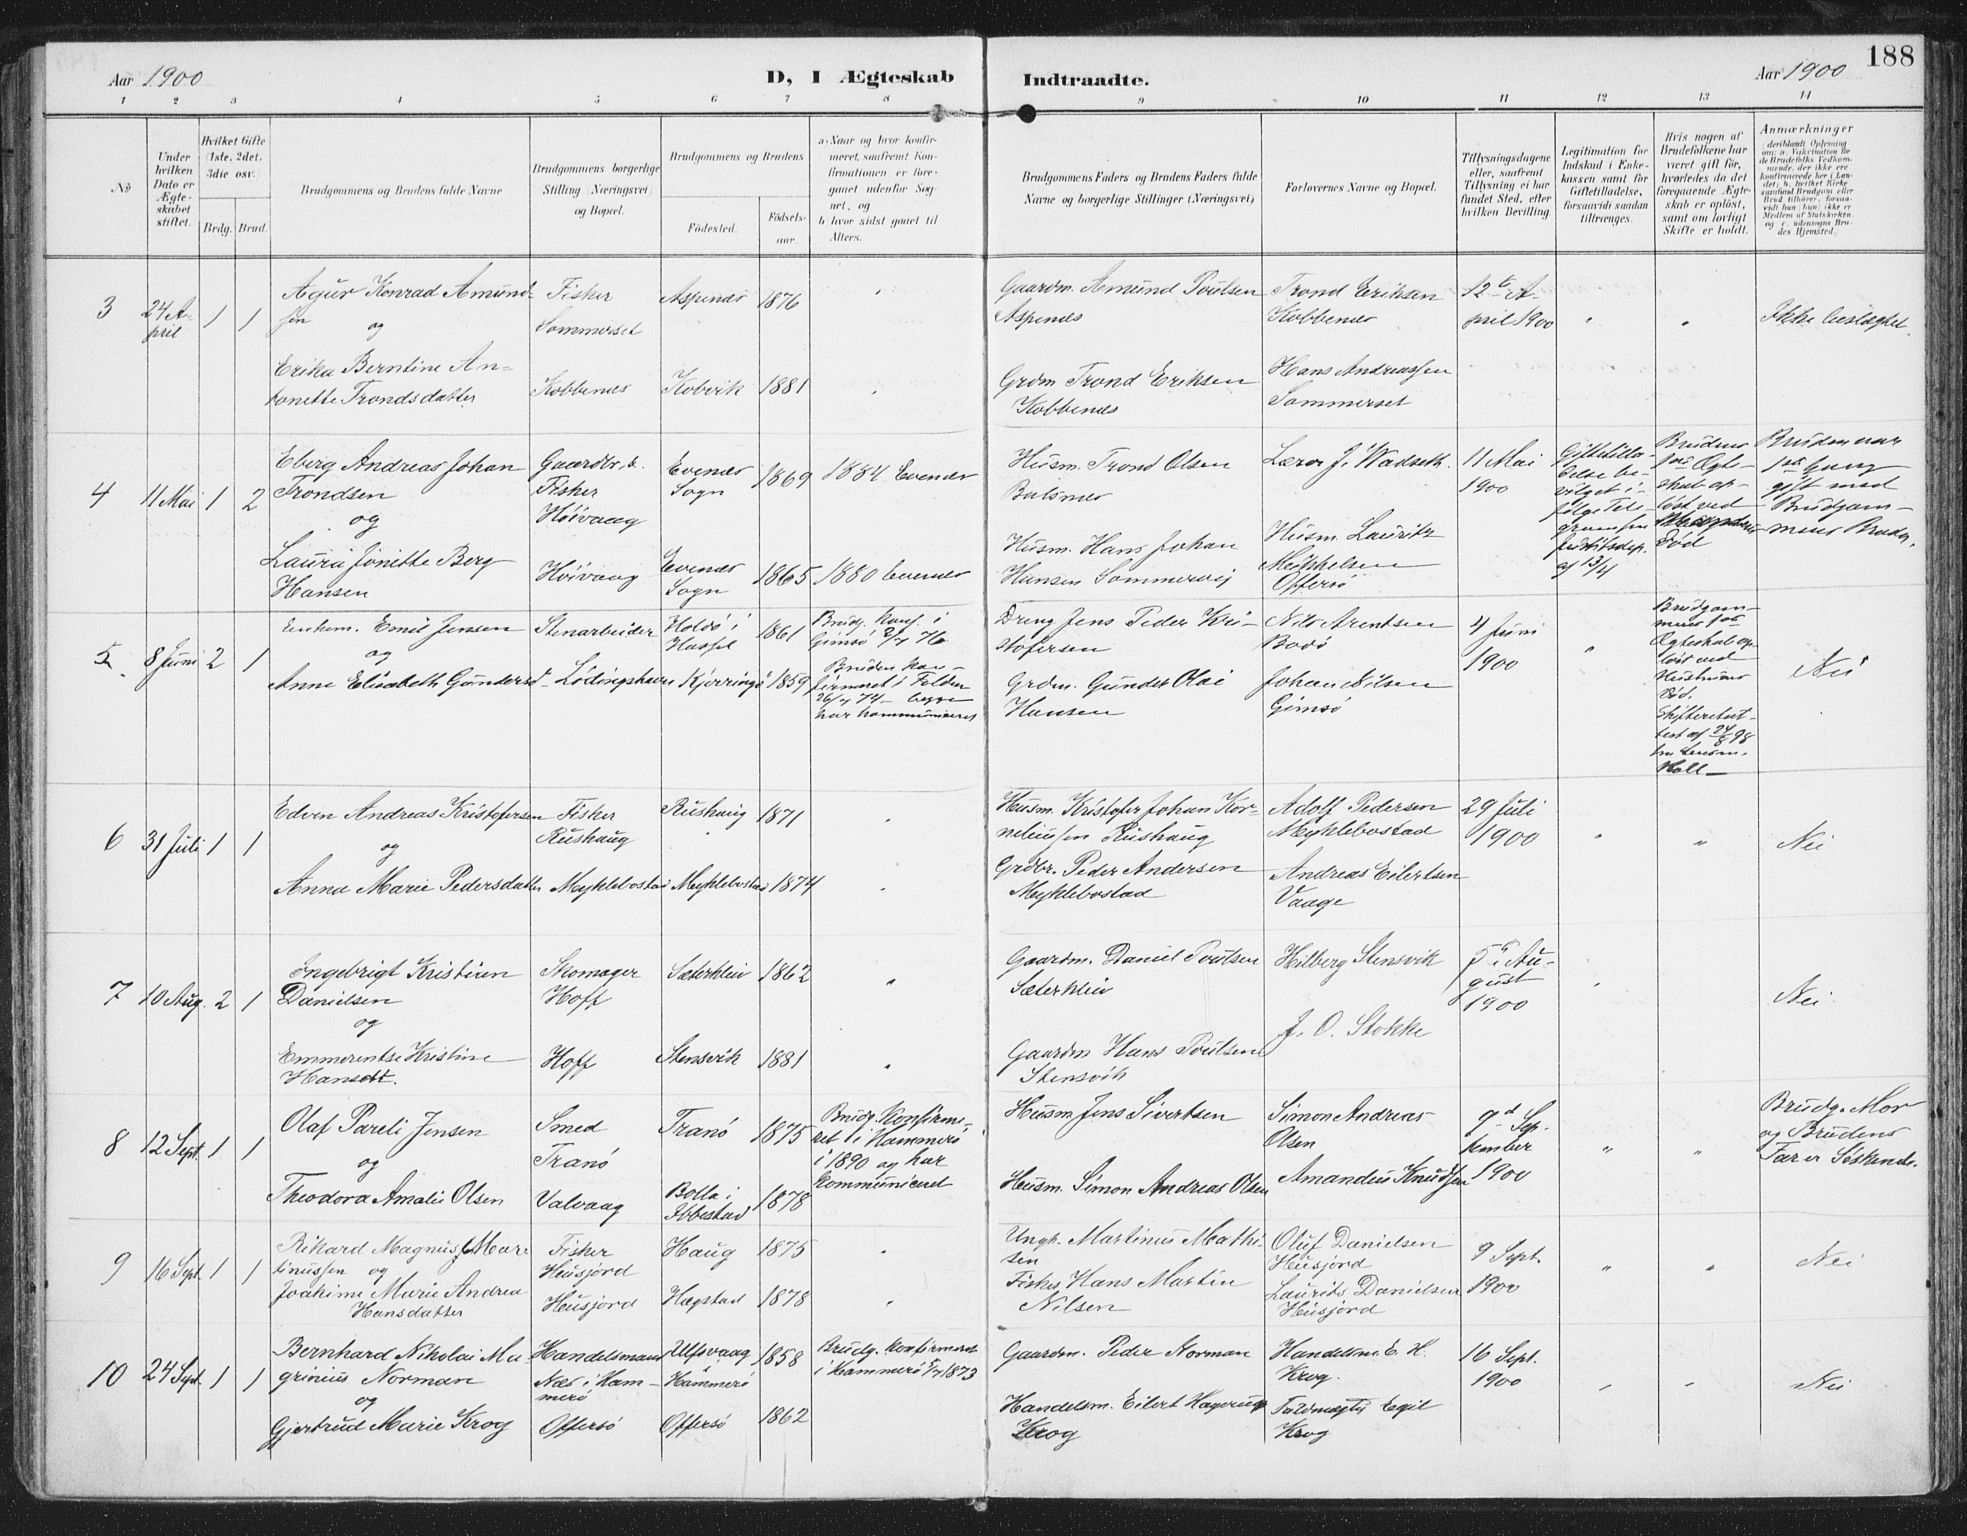 188
Aar 1900
D, I Ægteskab
Indtraadte.
Aar 1900
1 2 3 4 5 6 7 8 9 10 11 12 13 14
No
Under hvilken Dato er Ægteskabet stiftet.
Hvilket Gifte (1ste, 2det, 3die osv.
Brdg. Brud.
Brudgommens og Brudens fulde Navne
Brudgommens borgerlige Stilling (Næringsvei) og Bopæl.
Brudgommens og Brudens
Fødested.
Fødselsaar.
a. Naar og hvor konfirmeret, saafremt Konfirmationen er foregaaet udenfor Sognet, og
b. hvor sidst gaaet til Alters.
Brudgommens Faders og Brudens Faders fulde Navne og borgerlige Stillinger (Næringsvei)
Forlovernes Navne og Bopæl.
Tillysningsdagene eller, saafremt Tillysning ei har fundet Sted, efter hvilken Bevilling.
Legitimation for Indskud i Enkekassen samt for Giftetilladelse, forsaavidt saadan tiltrænges.
Hvis nogen af Brudefolkene har været gift før, hvorledes da det foregaaende Ægteskab er opløst, samt om lovligt Skifte er holdt.
Anmærkninger
3
24 April
1 1
Konrad Amundsen
og
Erika Berntine Antonette Trondsdatter
Fisker
Sommerset
Kobbenes
Aspenes 1876
Kobvik 1881
Gaardm. Amund Poulsen
Aspenes
Grdm Trond Eriksen
Kobbenes
Trond Eriksen
Kobbenes
Hans Andreassen
Sommerset
12te April 1900
Ikke beslægtet.
4
11 Mai
1 2
Eberg Andreas Johan
Trondsen
og
Laura Jonette Berg
Hansen
Gaardbr. &
Fisker
Høivaag
Høivaag
Evenes
Sogn 1869
Evenes
Sogn 1865
1884 Evenes
1880 Evenes
Husm. Trond Olsen
Balsnes
Husm. Hans Johan
Hansen Sommervig
Lærer J. Wadseth.
Husm. Lauritz
Mikkelsen
Offersø
11 Mai
1900
Brudens
1ste Ægteskab opløst ved
Død
Bruden var
1ste Gang
gift med
Brudgommens Broder.
5
8 Juni
2 1
Emil Jensen
og
Anne Elisabeth Gundersd
Stenarbeider
Lødingshavn
Holdø i
Hassel 1861
Kjerringø 1859
Brudg. konf. i
Gimsø
Bruden konfirmeret i Folden
begge
har kommuniceret
Dreng Jens Peder Kristofersen
Grdm. Gunder Olai
Hansen
Nils Arentsen
Bodø
Johan Nilsen
Gimsø
4 Juni
1900
Brudgommens 1ste
Ægteskab opløst ved
Hustruens
Død.
Skifteretsattest af 24/8 98
Holl
Nei
6
31 Juli
1 1
Edvin Andreas Kristofersen
og
Anna Marie Pedersdatter
Fisker
Rushaug
Myklebostad
Rushaug 1871
Myklebostad 1874
Husm. Kristofer Johan Korneliussen Rushaug
Grdbr. Peder Andersen
Myklebostad
Adolf Pedersen
Myklebostad
Andreas Eilertsen
Vaage
29 Juli
1900
Nei
7
10 Aug.
2 1
Ingebrigt Kristian
Danielsen
og
Emmerentse Kristine
Hansdt.
Skomager
Hoff
Hoff
Sæterkleiv 1862
Stensvik 1881
Gaardm. Daniel Poulsen
Sæterkleiv
Gaardm Hans Poulsen
Stensvik
Hilberg Stensvik
J. O. Stokke
5te August
1900
Nei
8
12 Sept.
1 1
Olaf Pareli Jensen
og
Theodora Amalie Olsen
Smed
Tranø
Valvaag
Tranø 1875
Bolla i
Ibbestad 1878
Brudg. Konfirmeret i Hammerø
i 1890 og har
kommuniceret
Husm Jens Sivertsen
Husm. Simon Andreas Olsen
Simon Andreas
Olsen
Amandus Knudsen
9d September
1900
Brudg. Mor
og Brudens
Far er Søskende.
9
16 Sept.
1 1
Rikard Magnus Martinussen og
Joakime Marie Andrea
Hansdatter
Fisker
Heusjord
Heusjord
Haug 1875
Hægstad 1878
Ungk. Martinus Mathisen
Fisker Hans Martin
Nilsen
Oluf Danielsen
Heusjord
Laurits Danielsen
Heusjord
9 Sept.
1900
Nei
10
24 Sept.
1 1
Bernhard Nikolai Magrinius Norman
og
Gjertrud Marie Krog
Handelsmand
Næs i Hammerø
Offersø
Ulfsvaag
Hammerø 1858
Offersø 1862
Brudg. konfirmeret
i Hammerø 1873
Gaardm. Peder Norman
Handelsm. Eilert Hagerup
Krog
Handelsm. E. H.
Krog.
Fuldmægtig Egil
Krog
16 Sept.
1900
Nei